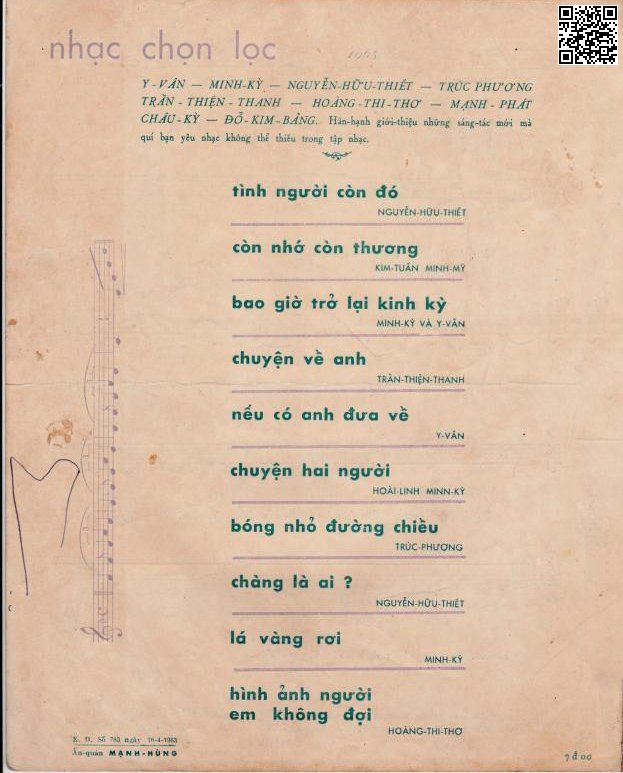 nhạc chọn lọc
1963
Y-VÂN — MINH-KỲ — NGUYỄN-HỮU-THIẾT — TRÚC PHƯƠNG
TRẦN - THIỆN - THANH — HOÀNG-THI-THƠ — MẠNH - PHÁT
CHÂU-KỲ — ĐỖ-KIM-BẢNG. Hân-hạnh giới-thiệu những sáng-tác mới mà
quí bạn yêu nhạc không thể thiếu trong tập nhạc.
tình người còn đó
NGUYỄN-HỮU-THIẾT
còn nhớ còn thương
KIM-TUẤN MINH-MỸ
bao giờ trở lại kinh kỳ
MINH-KỲ VÀ Y-VÂN
chuyện về anh
TRẦN-THIỆN-THANH
nếu có anh đưa về
Y-VÂN
chuyện hai người
HOÀI-LINH MINN-KỲ
bóng nhỏ đường chiều
TRÚC-PHƯỢNG
chàng là ai ?
NGUYỄN-HỮU-THIẾT
lá vàng rơi
MINH-KỲ
hình ảnh người
em không đợi
HOÀNG-THI-THƠ
K. D. Số 783 ngày 16-4-1963
Ấn-quán MẠNH-HÙNG
7đ00